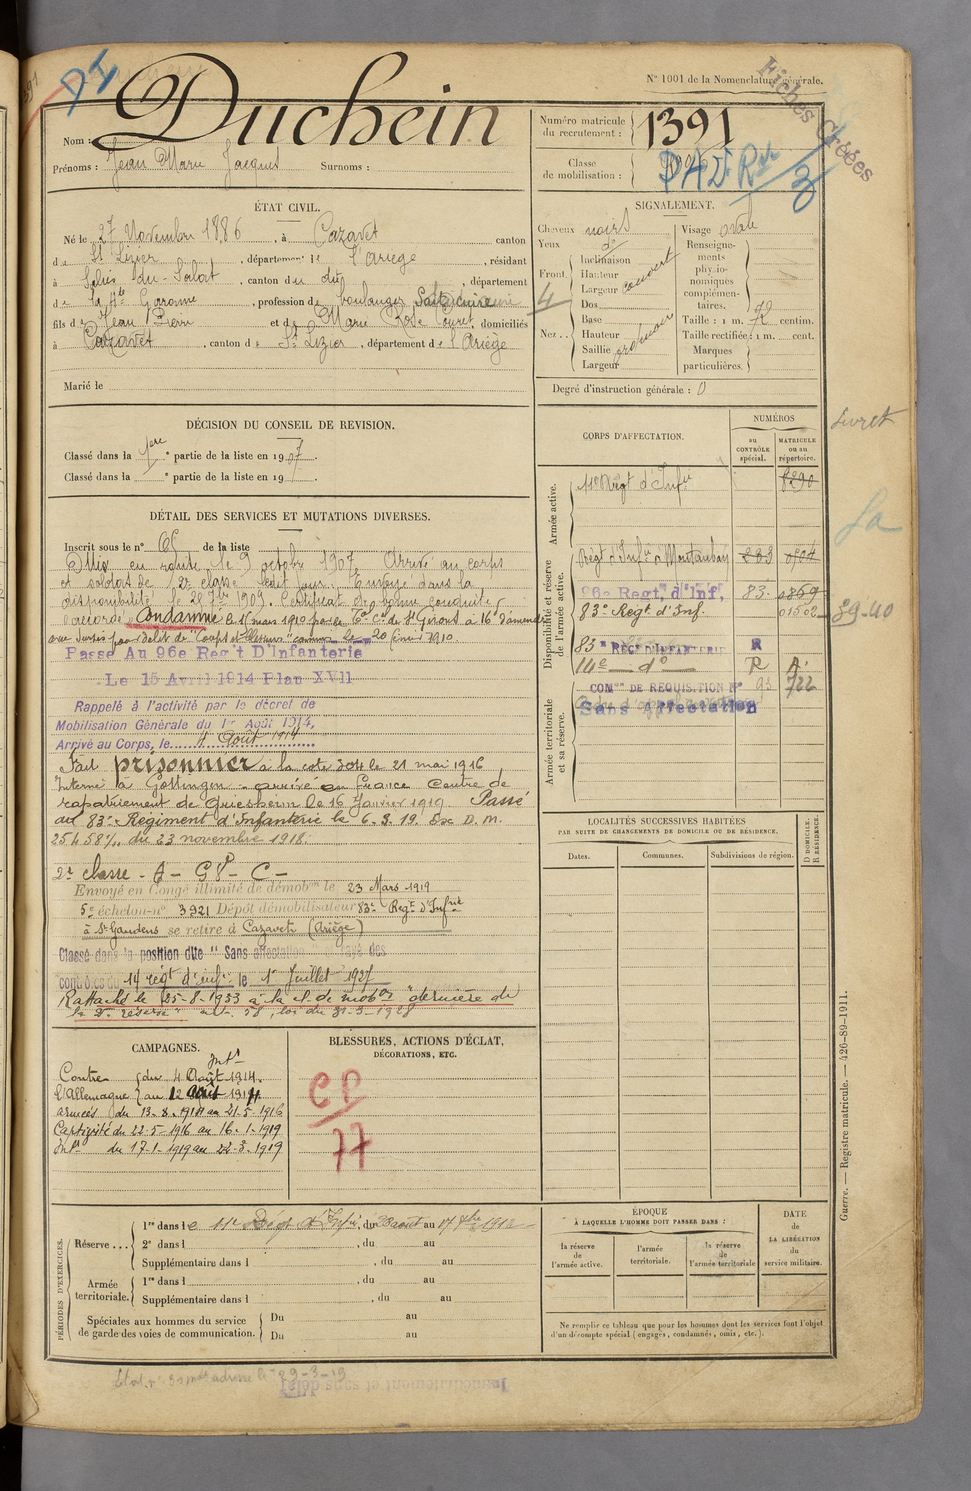 N° 1001 de la Nomenclature générale.
Fiches Créées
Nom : Duchein
Prénoms : Jean Marie Jacques Surnoms :
Numéro matricule du recrutement : 1391
Classe de mobilisation :
ÉTAT CIVIL.
Né le 27 Novembre 1886, à Cazavet canton
de St Lizier, département de l'Ariège, résidant
à Salies-du-Salat, canton du dit, département
de la Hte Garonne, profession de boulanger
fils de Jean Pierre et de Marie Rose Couret, domiciliés
à Cazavet, canton de St Lizier, département de l'Ariège
Marié le
SIGNALEMENT.
Cheveux noirs
Yeux do
Front Inclinaison
Hauteur
Largeur couvert
4
Nez Dos
Base
Hauteur
Saillie
Largeur
Visage ovale
Renseignements physionomiques complémentaires.
Taille : 1 m. centim.
Taille rectifiée : 1 m. cent.
Marques particulières.
Degré d'instruction générale : 0
DÉCISION DU CONSEIL DE REVISION.
Classé dans la 1ère partie de la liste en 1907
Classé dans la ° partie de la liste en 19
CORPS D'AFFECTATION.
NUMÉROS
au CONTRÔLE spécial.
MATRICULE ou au répertoire.
Armée active.
11e Régt d'Infie
Disponibilité et réserve de l'armée active.
Régt d'Infie de Montauban 233
96e Regt, d'Inf, 83. 0869
83e Regt d'Inf. 01502
83e RÉGt D'INFANTERIE R
14e do R A.
Armée territoriale et sa réserve.
COMon DE REQUISITION N° 93 722
Sans Affectation
livret
89-40
DÉTAIL DES SERVICES ET MUTATIONS DIVERSES.
Inscrit sous le n° 65 de la liste
Mis en route le 9 octobre 1907. Arrivé au corps
et soldat de 2e classe ledit jour. Envoyé dans la
disponibilité le 25 7bre 1909. Certificat de bonne conduite
accordé. Condamné le 15 mars 1910 par le Tal Cel de St Girons à 16 f d'amende
avec sursis pour délit de "Coups et blessures" commis le 20 février 1910.
Passé Au 96e Reg't D'Infanterie
Le 15 Avril 1914 Plan XVII
Rappelé à l'activité par le décret de
Mobilisation Générale du 1er Août 1914,
Arrivé au Corps, le 4 Août 1914
Fait prisonnier à la cote 304 le 21 mai 1916
Interné à Göttingen - arrivé en France Centre de
rapatriement de Griesheim le 16 Janvier 1919 Passé
au 83e Régiment d'Infanterie le 6.3.19. Ex D.M.
25458 1/11 du 23 novembre 1918.
2e classe - A - GP - C -
Envoyé en Congé illimité de démobon le 23 Mars 1919
5e échelon n° 3921 Dépôt démobilisateur 83e Régt d'Infrie
à St Gaudens se retire à Cazavet (Ariège)
Classé dans la position dite "Sans affectation" rayé des
contrôles du 14 régt d'inf. le 1er Juillet 1927
Rattaché le 25-8-1933 à la cl. de mobon "dernière de
la 2e réserve" art. 58, loi du 31-3-1928
LOCALITÉS SUCCESSIVES HABITÉES
PAR SUITE DE CHANGEMENTS DE DOMICILE OU DE RÉSIDENCE.
Dates.
Communes.
Subdivisions de région.
D DOMICILE. R RÉSIDENCE.
CAMPAGNES.
Contre l'Allemagne
Intr
du 4 Août 1914.
au 12 Août 1914
armées du 13-8-1914 au 21-5-1916
Captivité du 22-5-1916 au 16-1-1919
Intr du 17-1-1919 au 22-3-1919
BLESSURES, ACTIONS D'ÉCLAT,
DÉCORATIONS, ETC.
PÉRIODES D'EXERCICES.
Réserve...
1re dans le 11e Régt d'Infie, du 23 août au 1912
2e dans l , du au
Supplémentaire dans l , du au
Armée territoriale.
1re dans l , du au
Supplémentaire dans l , du au
Spéciales aux hommes du service de garde des voies de communication.
Du au
Du au
ÉPOQUE
À LAQUELLE L'HOMME DOIT PASSER DANS :
la réserve de l'armée active.
l'armée territoriale.
la réserve de l'armée territoriale
DATE de LA LIBÉRATION du service militaire.
Ne remplir ce tableau que pour les hommes dont les services font l'objet
d'un décompte spécial (engagés, condamnés, omis, etc.).
Guerre. — Registre matricule. — 426-89-1911.